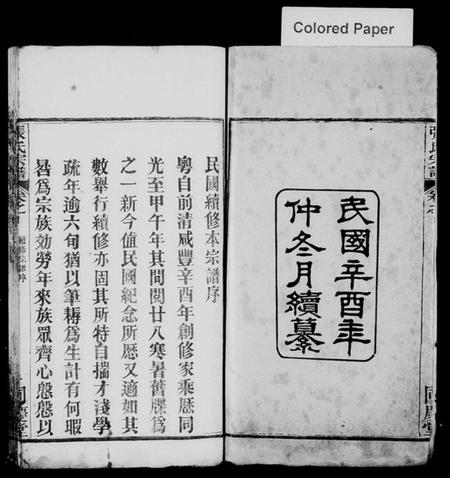 Colored Paper
張氏宗譜
民國辛酉年
仲冬月續纂
民國續修本宗譜序
粵自前清咸豐辛酉年創修家乘歷同
光至甲午年其間閱廿八寒暑舊牒爲
之一新今值民國紀念所歷又適如其
數舉行續修亦固其所特自揣才淺學
疏年逾六旬猶以筆耨爲生計有何暇
晷爲宗族効勞年來族眾齊心慇慇以
張氏宗譜
續修宗譜序